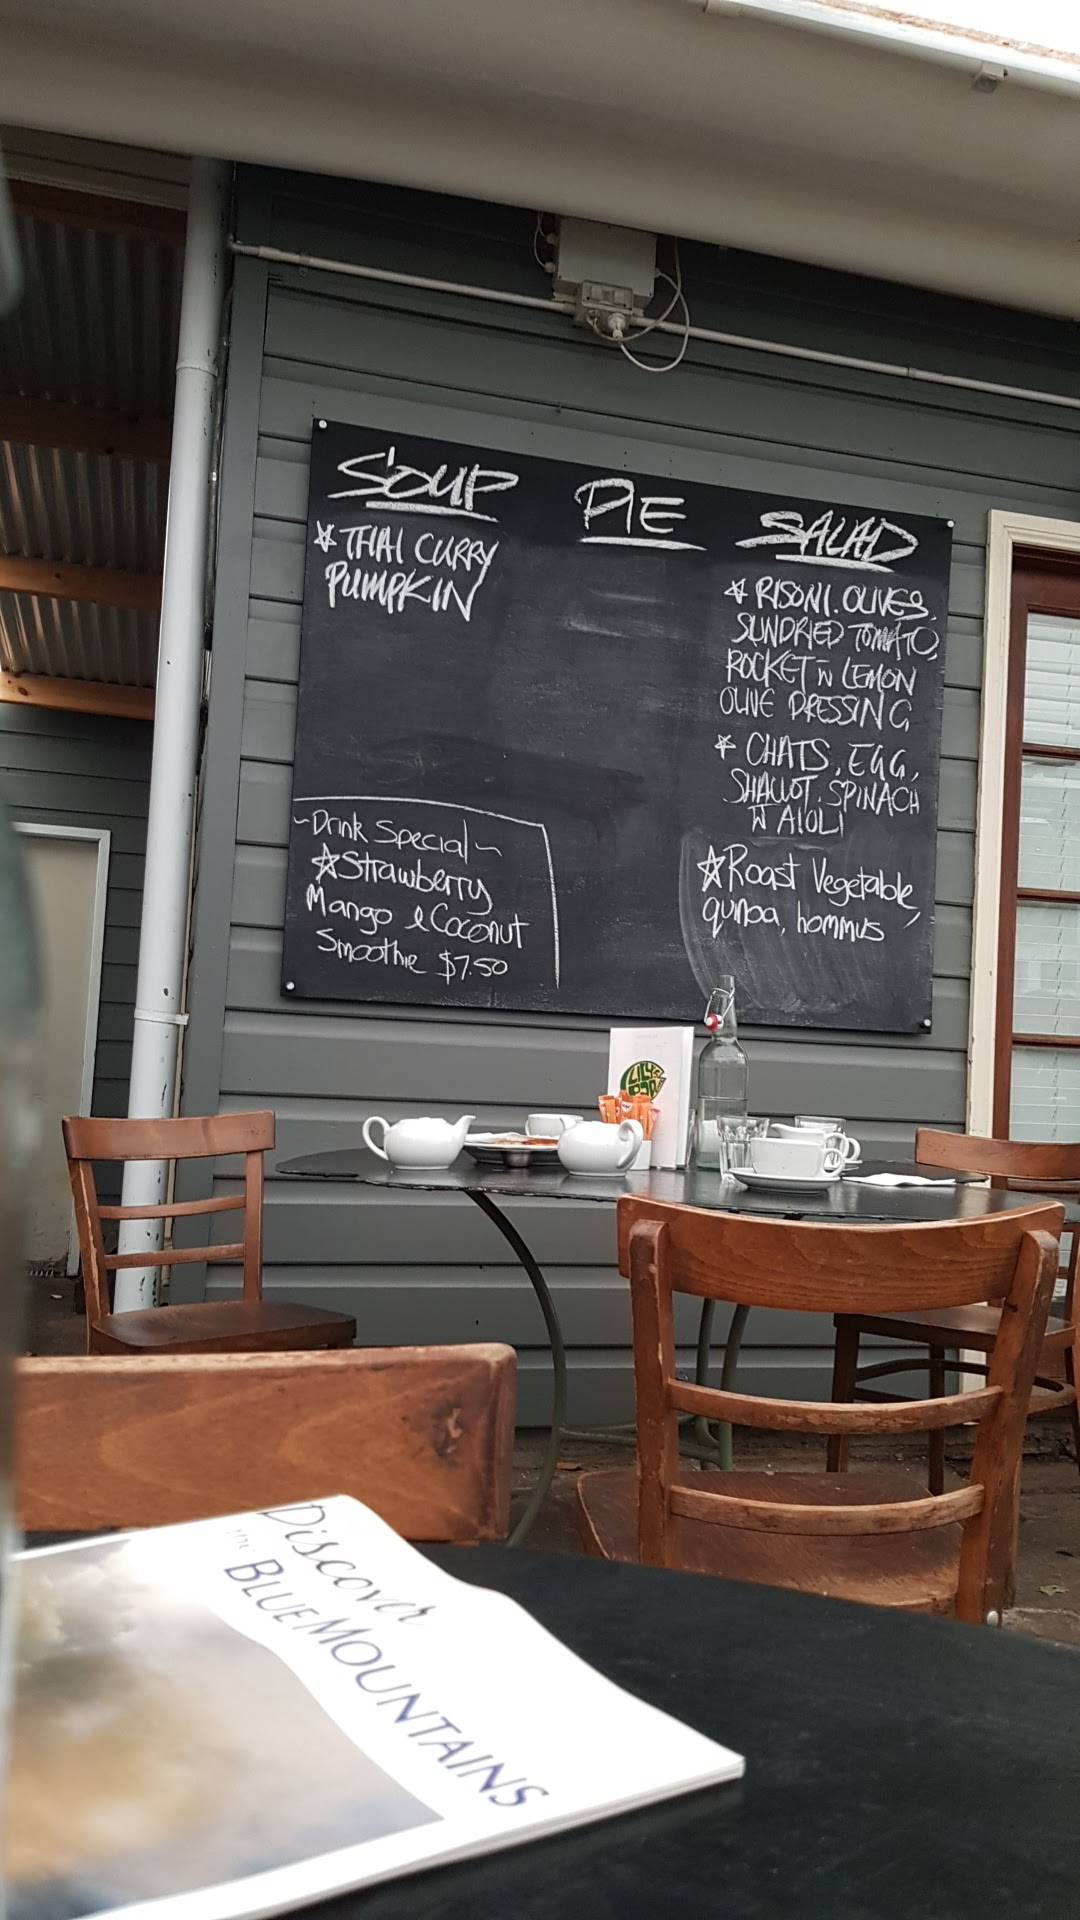 SOUP
☆ THAI CURRY
PUMPKIN
PIE
SALAD
☆ RISONI. OLIVES.
SUNDRIED TOMATO,
ROCKET W LEMON
OLIVE DRESSING
☆ CHATS, EGG,
SHALLOT. SPINACH
W AIOLI
☆ Roast Vegetable,
quinoa, hommus
~Drink Special~
☆ Strawberry
Mango & Coconut
Smoothie $7.50
LILY'S
Discover
the BLUE MOUNTAINS